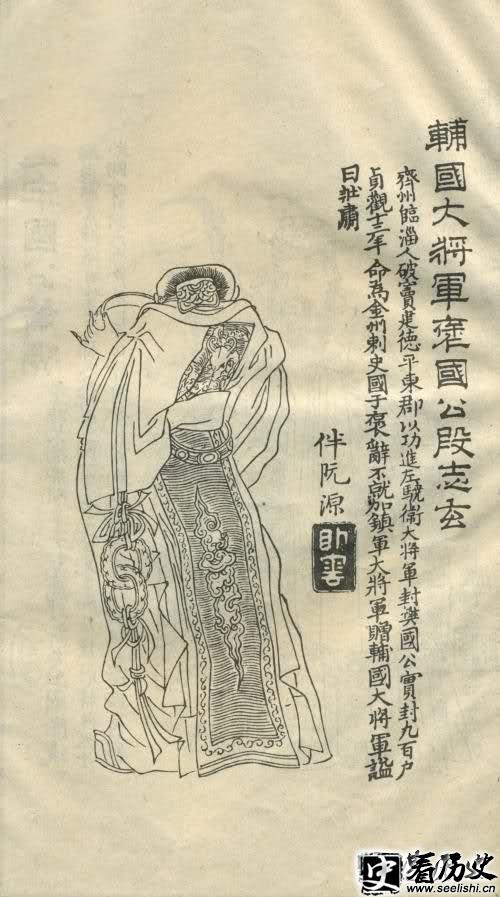 輔國大將軍褒國公段志玄
齊州臨淄人破竇建德平東郡以功進左驍衞大將軍封樊國公實封九百户
貞觀十二年命為金州刺史國于褒辭不就加鎮軍大將軍贈輔國大將軍謚
曰壯肅
伴阮源
史 看历史
www.seelishi.cn